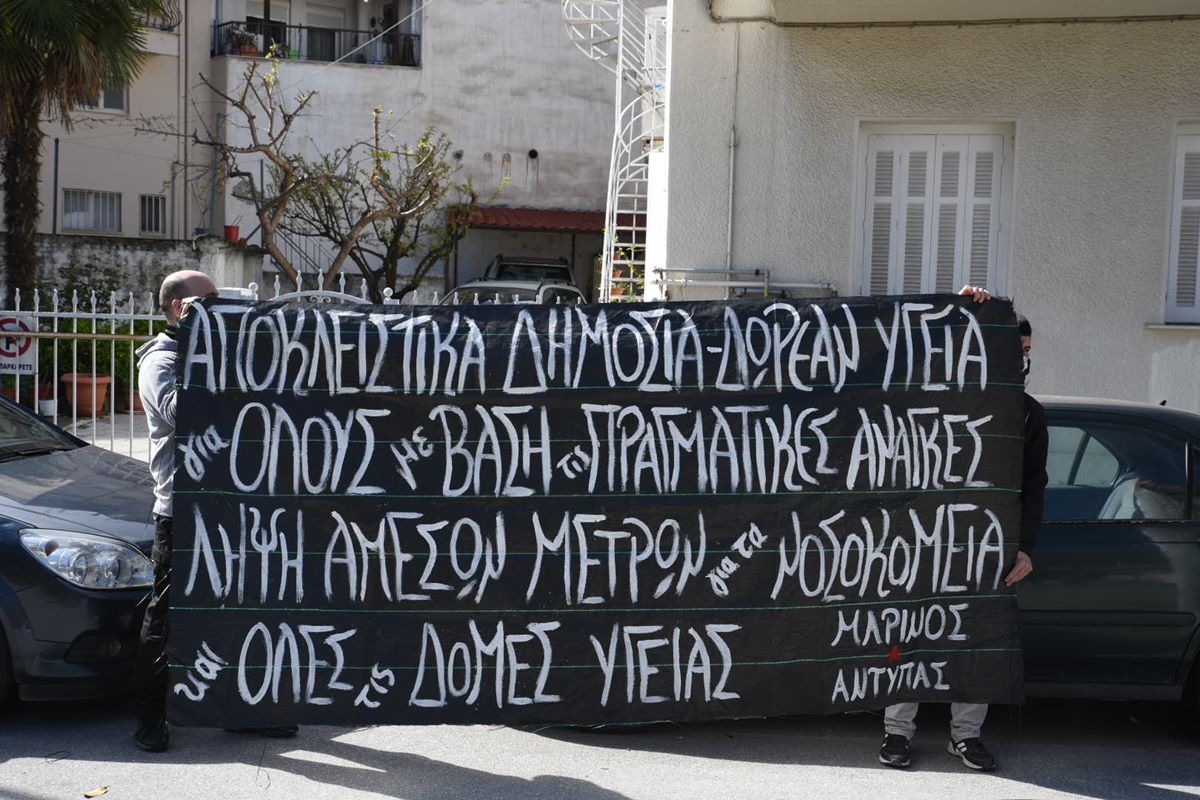 ΑΠΟΚΛΕΙΣΤΙΚΑ ΔΗΜΟΣΙΑ-ΔΩΡΕΑΝ ΥΓΕΙΑ
για ΟΛΟΥΣ με ΒΑΣΗ τις ΠΡΑΓΜΑΤΙΚΕΣ ΑΝΑΓΚΕΣ
ΛΗΨΗ ΑΜΕΣΩΝ ΜΕΤΡΩΝ για τα ΝΟΣΟΚΟΜΕΙΑ
και ΟΛΕΣ τις ΔΟΜΕΣ ΥΓΕΙΑΣ
ΜΑΡΙΝΟΣ
ΑΝΤΥΠΑΣ